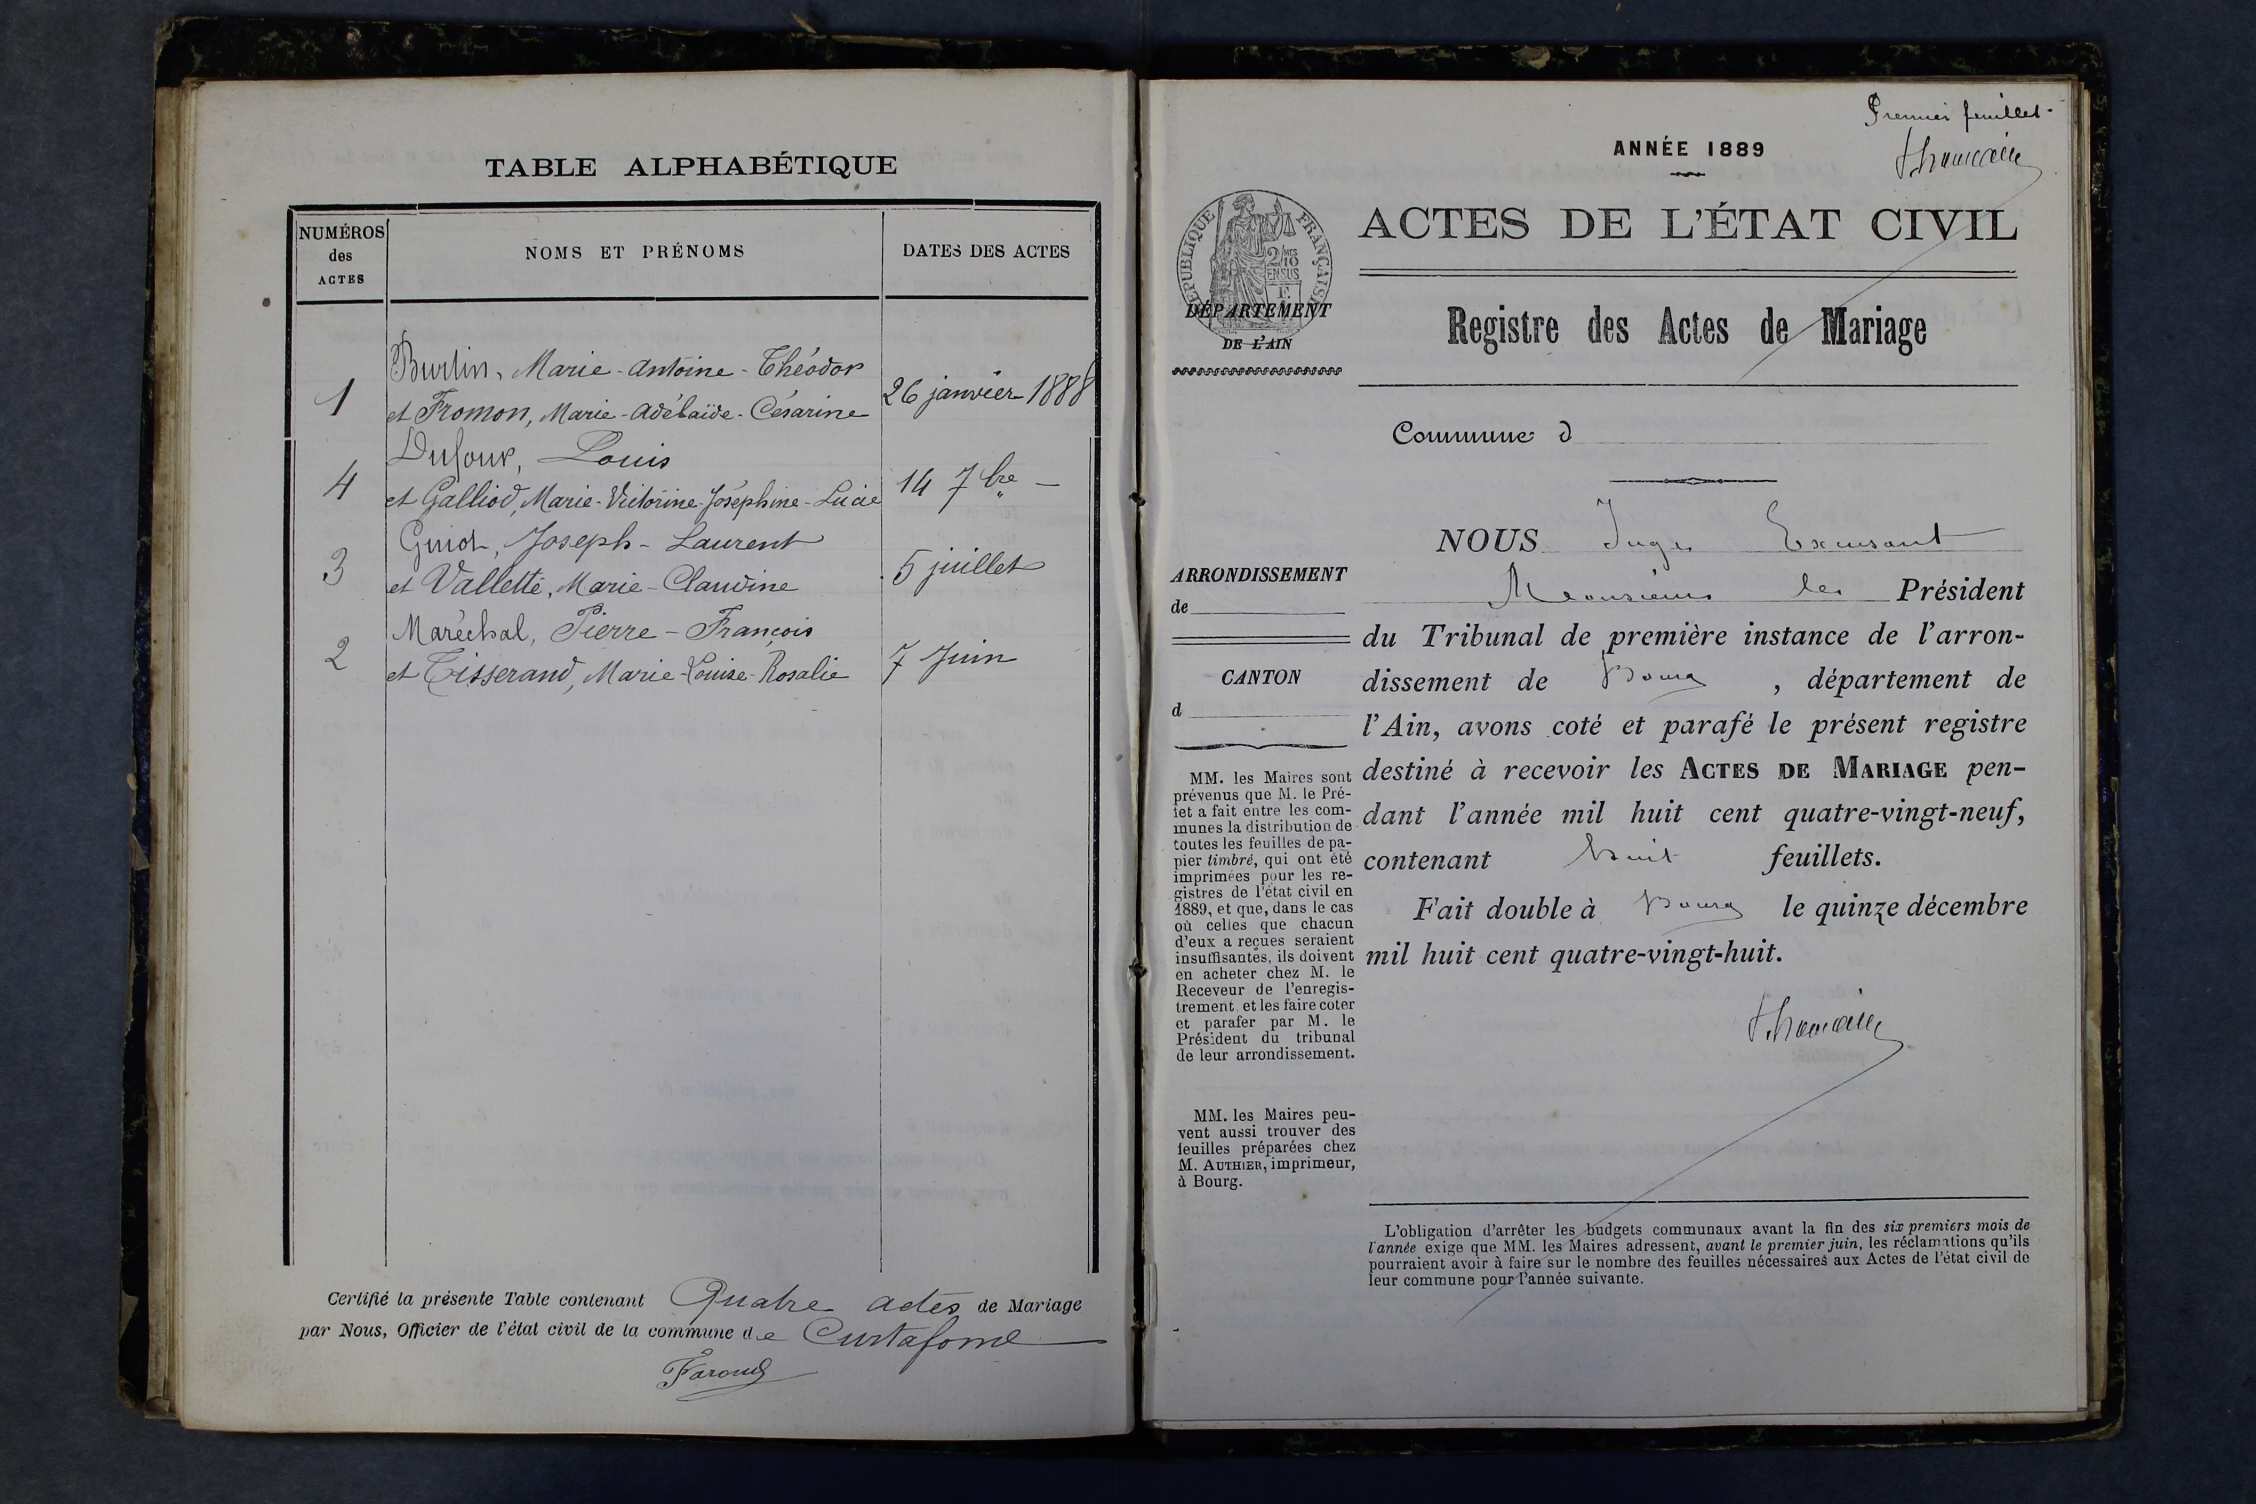 TABLE ALPHABÉTIQUE
NUMÉROS
des
ACTES
NOMS ET PRÉNOMS
DATES DES ACTES
1
Burtin, Marie-Antoine-Théodor
et Fromon, Marie-Adélaïde-Césarine
26 janvier 1888
4
Dufour, Louis
et Galliod, Marie-Victorine-Joséphine-Lucie
14 7bre —
3
Guiot, Joseph-Laurent
et Vallette, Marie-Claudine
5 juillet
2
Maréchal, Pierre-François
et Tisserand, Marie-Louise-Rosalie
7 Juin
Certifié la présente Table contenant Quatre actes de Mariage
par Nous, Officier de l'état civil de la commune de Curtafond
Premier feuillet
ANNÉE 1889
RÉPUBLIQUE FRANÇAISE
2/10MES
EN SUS
DÉPARTEMENT
DE L'AIN
ACTES DE L'ÉTAT CIVIL
Registre des Actes de Mariage
Commune d
NOUS Juge
Monsieur le Président
du Tribunal de première instance de l'arron-
dissement de Bourg, département de
l'Ain, avons coté et parafé le présent registre
destiné à recevoir les ACTES DE MARIAGE pen-
dant l'année mil huit cent quatre-vingt-neuf,
contenant huit feuillets.
Fait double à Bourg le quinze décembre
mil huit cent quatre-vingt-huit.
ARRONDISSEMENT
de
CANTON
d
MM. les Maires sont
prévenus que M. le Pré-
fet a fait entre les com-
munes la distribution de
toutes les feuilles de pa-
pier timbré, qui ont été
imprimées pour les re-
gistres de l'état civil en
1889, et que, dans le cas
où celles que chacun
d'eux a reçues seraient
insuffisantes, ils doivent
en acheter chez M. le
Receveur de l'enregis-
trement et les faire coter
et parafer par M. le
Président du tribunal
de leur arrondissement.
MM. les Maires peu-
vent aussi trouver des
feuilles préparées chez
M. AUTHIER, imprimeur,
à Bourg.
L'obligation d'arrêter les budgets communaux avant la fin des six premiers mois de
l'année exige que MM. les Maires adressent, avant le premier juin, les réclamations qu'ils
pourraient avoir à faire sur le nombre des feuilles nécessaires aux Actes de l'état civil de
leur commune pour l'année suivante.